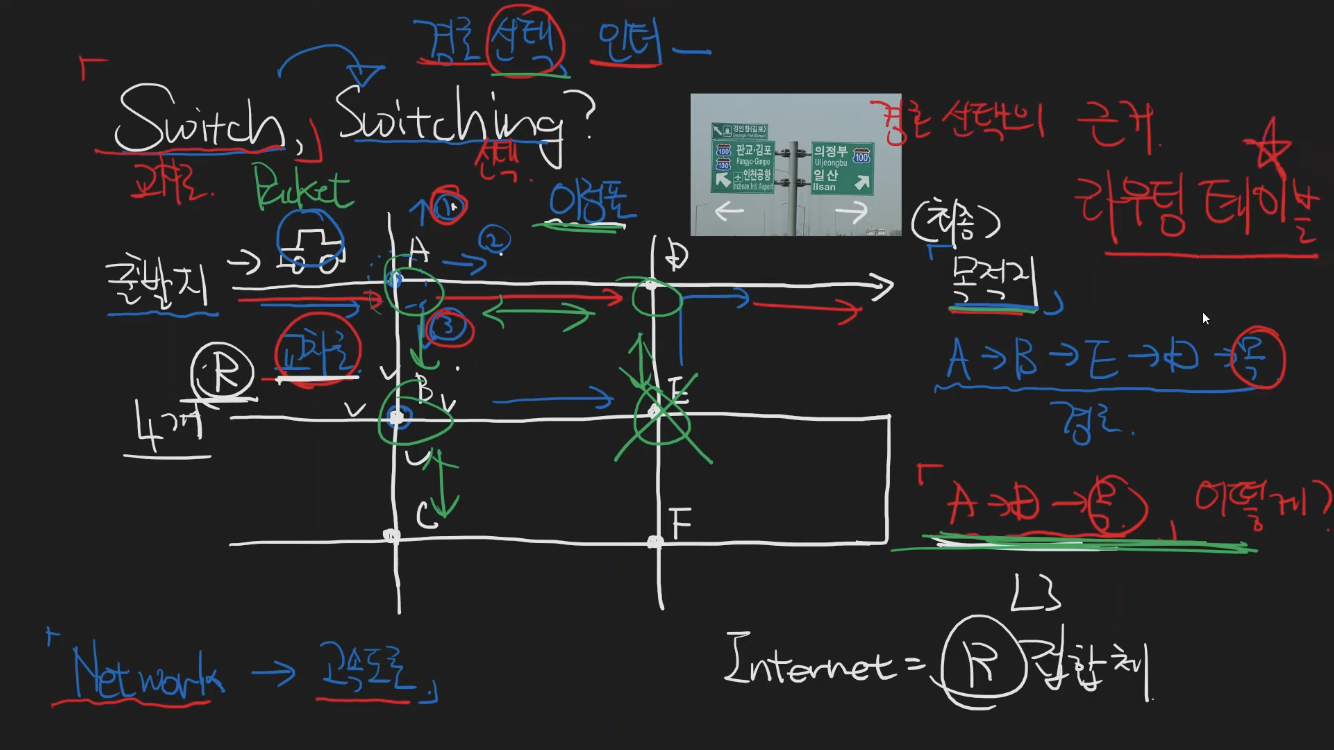 경로 선택 인터
「Switch,」 Switching?
교차로. 선택.
Packet
이정표
경인항(김포)
100 판교·김포
Pangyo·Gimpo
인천공항
Incheon Int. Airport
의정부 100
Uijeongbu
일산
Ilsan
← →
경로 선택의 근거
라우팅 테이블
(최종)
「목적지」
출발지 →
① ② ③
A D
교차로
R
4개
B E
C F
A → B → E → D → 목
경로.
「A → D → 목」 어떻게?
L3
Internet = R 집합체
「Network → 고속도로」